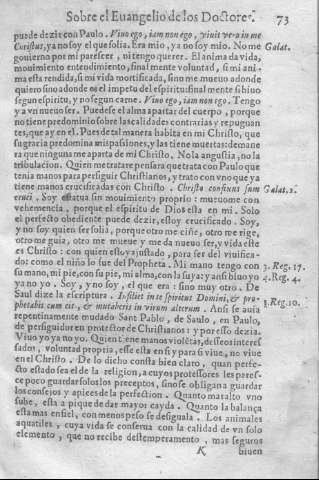 Sobre el Euangelio de los Doctores. 73
puede dezir con Paulo. Viuo ego, iam non ego, viuit vero in me
Christus, ya no soy el que solia. Era mio, ya no soy mio. No me Galat.
gouierno por mi parescer, ni tengo querer. El anima da vida,
mouimiento entendimiento, finalmente voluntad, si mi ani-
ma esta rendida, si mi vida mortificada, sino me mueuo adonde
quiero sino adonde es el impetu del espiritu: finalmente si biuo
segun espiritu, y no segun carne. Viuo ego, iam non ego. Tengo
ya vn nueuo ser. Puedese el alma apartar del cuerpo, porque
no tiene predominio sobre las calidades contrarias y repugnan
tes, que ay en el. Pues de tal manera habita en mi Christo, que
su gracia predomina mis passiones, y las tiene muertas: demane
ra que ninguna me aparta de mi Christo. No la angustia, no la
tribulacion. Quien me tratare pensara que trata con Paulo que
tenia manos para perseguir Christianos, y trato con vno que ya
tiene manos crucificadas con Christo. Christo confixus sum Galat. 2.
cruci. Soy estatua sin mouimiento proprio: mueuome con
vehemencia, porque el espiritu de Dios esta en mi. Solo
el perfecto obediente puede dezir, estoy crucificado. Soy,
y no soy quien ser solia, porque otro me ciñe, otro me rige,
otro me guia, otro me mueue y me da nueuo ser, y vida este
es Christo: con quien estoy ajustado, para ser del viuifica-
do: como el niño lo fue del Propheta. Mi mano tengo con 3. Reg. 17.
su mano, mi pie, con su pie, mi alma, con la suya: y ansi biuo yo 4. Reg. 4.
ya no yo. Soy, y no soy, el que era: sino muy otro. De
Saul dize la escriptura. Insiliet in te spiritus Domini, & pro-
phetabis cum eis, & mutaberis in virum alterum. Ansi se auia 1. Reg. 10.
repentinamente mudado Sant Pablo, de Saulo, en Paulo,
de perseguidor en protector de Christianos: y por esso dezia.
Viuo yo ya no yo. Quien tiene manos violentas, desseos interes
sados, voluntad propria, esse esta en si y para si viue, no viue
en el Christo. De lo dicho consta bien claro, quan perfe-
cto estado sea el de la religion, a cuyos professores les pares-
ce poco guardar solos los preceptos, sino se obligan a guardar
los consejos y apices de la perfection. Quanto mas alto vno
sube, esta a pique de dar mayor cayda. Quanto la balança
esta mas en fiel, con menos peso se desiguala. Los animales
aquatiles, cuya vida se conserua con la calidad de vn solo
elemento, que no recibe destemperamento, mas seguros
K biuen